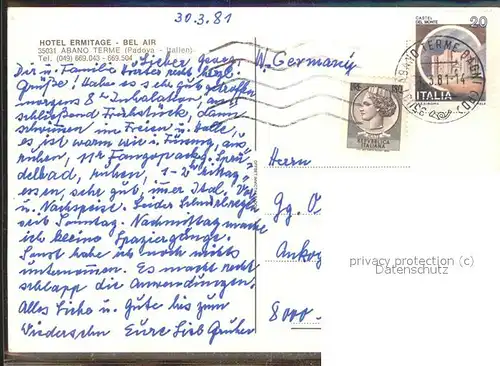 30.3.81
HOTEL ERMITAGE - BEL AIR
35031 ABANO TERME (Padova - Italien)
Tel. (049) 669.043 - 669.504
Lieber Georg
Dir u. Familie
Grüße! Habe es s. gut getroffen
morgens 8h Inhalation, an-
schließend Frühstück, dann
schwimmen im Freien u. Halle,
es ist warm wie i. Füssing, aus-
ruhen, 11h Fangopackg.
delbad, ruhen, 1-2h
essen, sehr gut, imer Ital. Vor
u. Nachspeise. Leider
seit Sonntag. Nachmittag mache
ich kleine Spaziergänge.
Sonst habe ich noch nichts
unternomen. Es macht recht
schlapp die Anwendungen.
Alles Liebe u. Gute bis zum
Wiedersehn Eure
W. Germany
CASTEL
DEL MONTE
20
ITALIA
ABANO TERME
3.81
REPVBBLICA
ITALIANA
Herrn
Gg.
8000
privacy protection (c)
Datenschutz